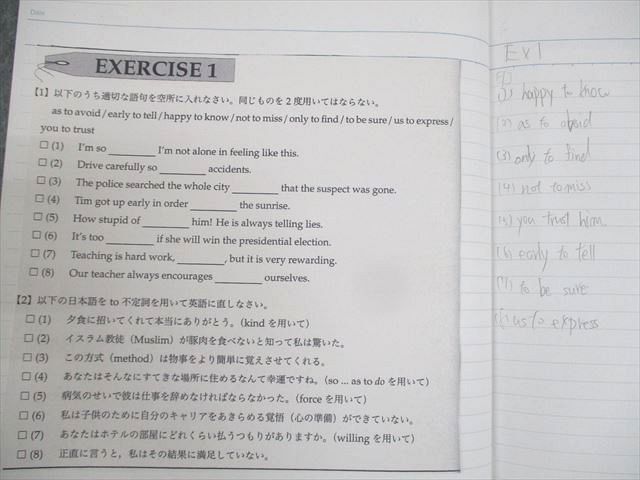 Date
EXERCISE 1
【1】以下のうち適切な語句を空所に入れなさい。同じものを2度用いてはならない。
as to avoid / early to tell / happy to know / not to miss / only to find / to be sure / us to express /
you to trust
□ (1) I'm so ________ I'm not alone in feeling like this.
□ (2) Drive carefully so ________ accidents.
□ (3) The police searched the whole city ________ that the suspect was gone.
□ (4) Tim got up early in order ________ the sunrise.
□ (5) How stupid of ________ him! He is always telling lies.
□ (6) It's too ________ if she will win the presidential election.
□ (7) Teaching is hard work, ________, but it is very rewarding.
□ (8) Our teacher always encourages ________ ourselves.
【2】以下の日本語を to 不定詞を用いて英語に直しなさい。
□ (1) 夕食に招いてくれて本当にありがとう。(kind を用いて)
□ (2) イスラム教徒（Muslim）が豚肉を食べないと知って私は驚いた。
□ (3) この方式（method）は物事をより簡単に覚えさせてくれる。
□ (4) あなたはそんなにすてきな場所に住めるなんて幸運ですね。(so ... as to do を用いて)
□ (5) 病気のせいで彼は仕事を辞めなければならなかった。(force を用いて)
□ (6) 私は子供のために自分のキャリアをあきらめる覚悟（心の準備）ができていない。
□ (7) あなたはホテルの部屋にどれくらい払うつもりがありますか。(willing を用いて)
□ (8) 正直に言うと，私はその結果に満足していない。
Ex 1
(1) happy to know
(2) as to avoid
(3) only to find
(4) not to miss
(5) you trust him
(6) early to tell
(7) to be sure
(8) us to express